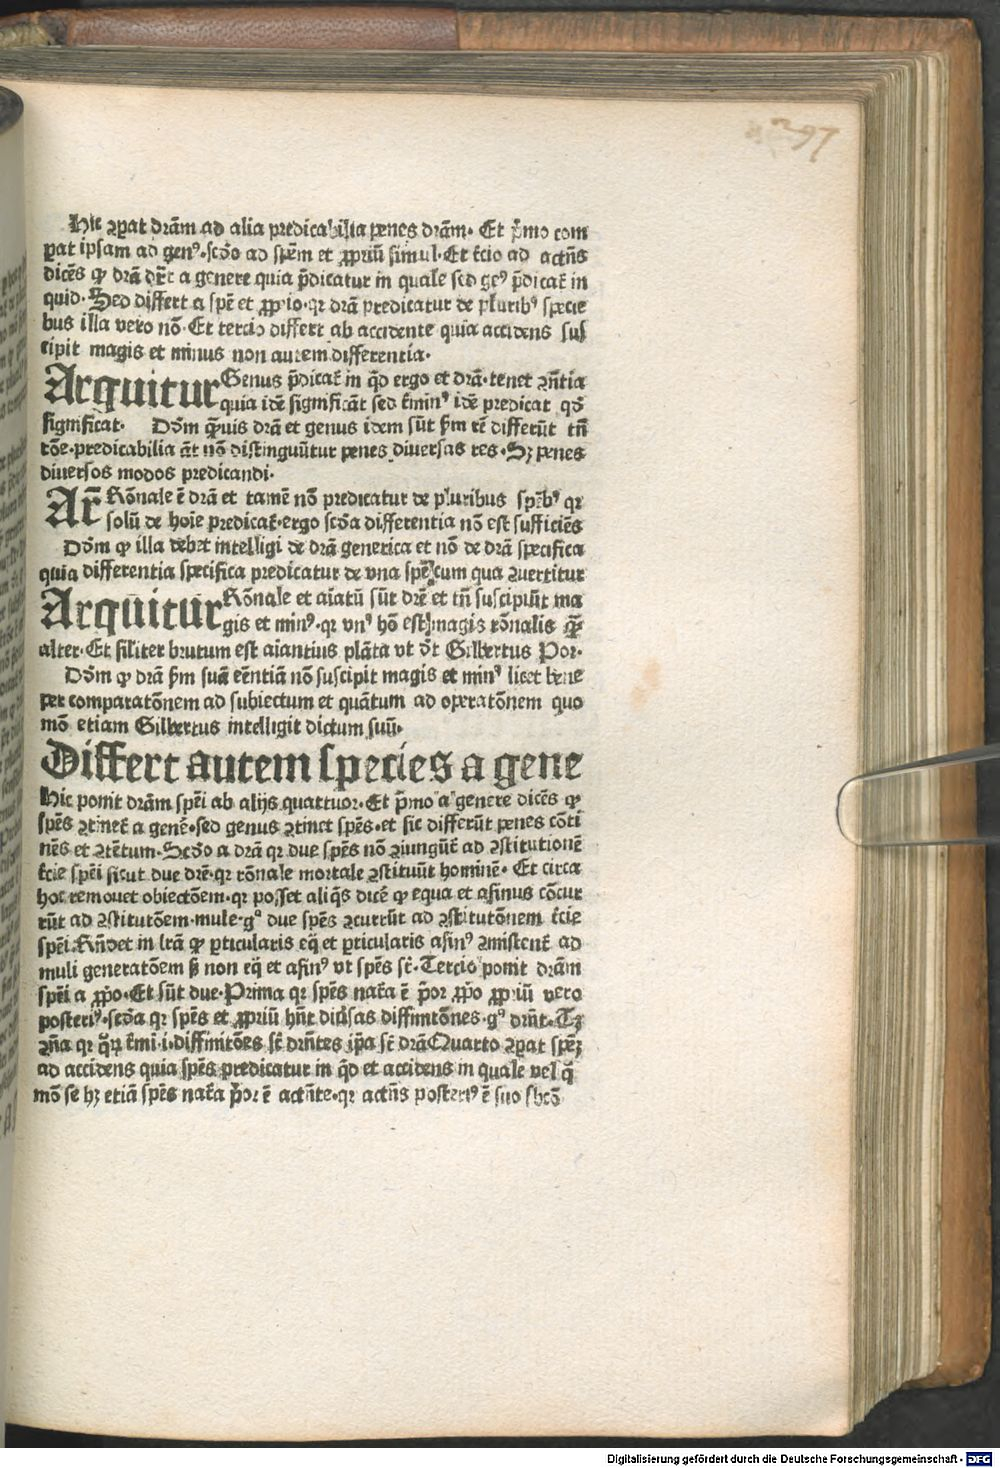 297
Hic ꝯparat drãm ad alia predicabilia penes drãm. Et p̃mo com
parat ipsam ad genꝰ. scd̃o ad spẽm et ꝓpriũ simul. Et t̃cio ad actñs
dicẽs ꝙ drã dr̃t a genere quia p̃dicatur in quale sed geꝰ p̃dicat̃ in
quid. Sed differt a spẽ et ꝓprio. qr drã predicatur de pluribꝰ specie
bus illa vero nõ. Et tercio differt ab accidente quia accidens sus
cipit magis et minus non autem differentia.
Arguitur Genus p̃dicat̃ in q̃d ergo et drã. tenet ꝯñtia
quia idẽ significãt sed t̃minꝰ idẽ predicat qd̃
significat. Dd̃m q̃uis drã et genus idem sũt ẜm rẽ differũt tñ
rõe. predicabilia ãt nõ distinguũtur penes diuersas res. Sꝫ penes
diuersos modos predicandi.
Ar̃ Rõnale ẽ drã et tamẽ nõ predicatur de pluribus spẽbꝰ qr
solũ de hoĩe predicat̃. ergo scd̃a differentia nõ est sufficiẽs
Dd̃m ꝙ illa debet intelligi de drã generica et nõ de drã specifica
quia differentia specifica predicatur de vna spẽ cum qua ꝯuertitur
Arguitur Rõnale et aĩatũ sũt drẽ et tñ suscipiũt ma
gis et minꝰ. qr vnꝰ hõ est magis rõnalis q̃
alter. Et siliter brutum est aĩantius plãta vt d̃t Gilbertus Por.
Dd̃m ꝙ drã ẜm suã eẽntiã nõ suscipit magis et minꝰ licet bene
per comparatõnem ad subiectum et quãtum ad operatõnem quo
mõ etiam Gilbertus intelligit dictum suũ.
Differt autem species a gene
Hic ponit drãm spẽi ab alijs quattuor. Et p̃mo a genere dicẽs ꝙ
spẽs ꝯtinet̃ a genẽ. sed genus ꝯtinet spẽs. et sic differũt penes cõti
nẽs et ꝯtẽtum. Scd̃o a drã qr due spẽs nõ ꝯiungũt̃ ad ꝯstitutionẽ
t̃cie spẽi sicut due drẽ. qr rõnale mortale ꝯstituũt hominẽ. Et circa
hoc remouet obiectõem. qr posset aliq̃s dicẽ ꝙ equa et asinus cõcur
rũt ad ꝯstitutõem mule. gͣ due spẽs ꝯcurrũt ad ꝯstitutõnem t̃cie
spẽi. Rñdet in lrã ꝙ ꝑticularis eq̃ et ꝑticularis asinꝰ ꝯmiscent̃ ad
muli generatõem ẜ non eq̃ et asinꝰ vt spẽs st̃. Tercio ponit drãm
spẽi a ꝓpo. Et sũt due. Prima qr spẽs nat̃a ẽ p̃or ꝓpo ꝓpriũ vero
posteriꝰ. scd̃a qr spẽs et ꝓpriũ hñt diũsas diffinitõnes. gͣ drñt. Tꝫ
ꝯña qr q̃rũ t̃mi .i. diffinitões st̃ drñtes ip̃a st̃ drã Quarto ꝯparat spẽꝫ
ad accidens quia spẽs predicatur in q̃d et accidens in quale vel q̃
mõ se hꝫ etiã spẽs nat̃a p̃or ẽ actñte. qr actñs posteriꝰ ẽ suo sbcõ
Digitalisierung gefördert durch die Deutsche Forschungsgemeinschaft - DFG